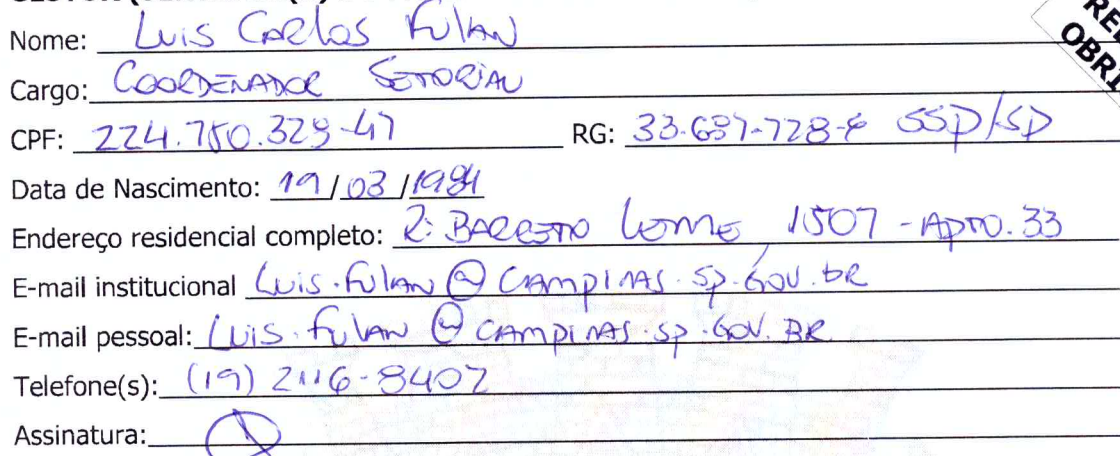 Nome: Luis Carlos Fulan
Cargo: COORDENADOR SETORIAL
CPF: 224.750.329-47 RG: 33.687.728-6 SSP/SP
Data de Nascimento: 19/03/1984
Endereço residencial completo: R: BARRETO LEME 1507 - APTO. 33
E-mail institucional Luis.fulan@campinas.sp.gov.br
E-mail pessoal: Luis.fulan@campinas.sp.gov.BR
Telefone(s): (19) 2116-8407
Assinatura: